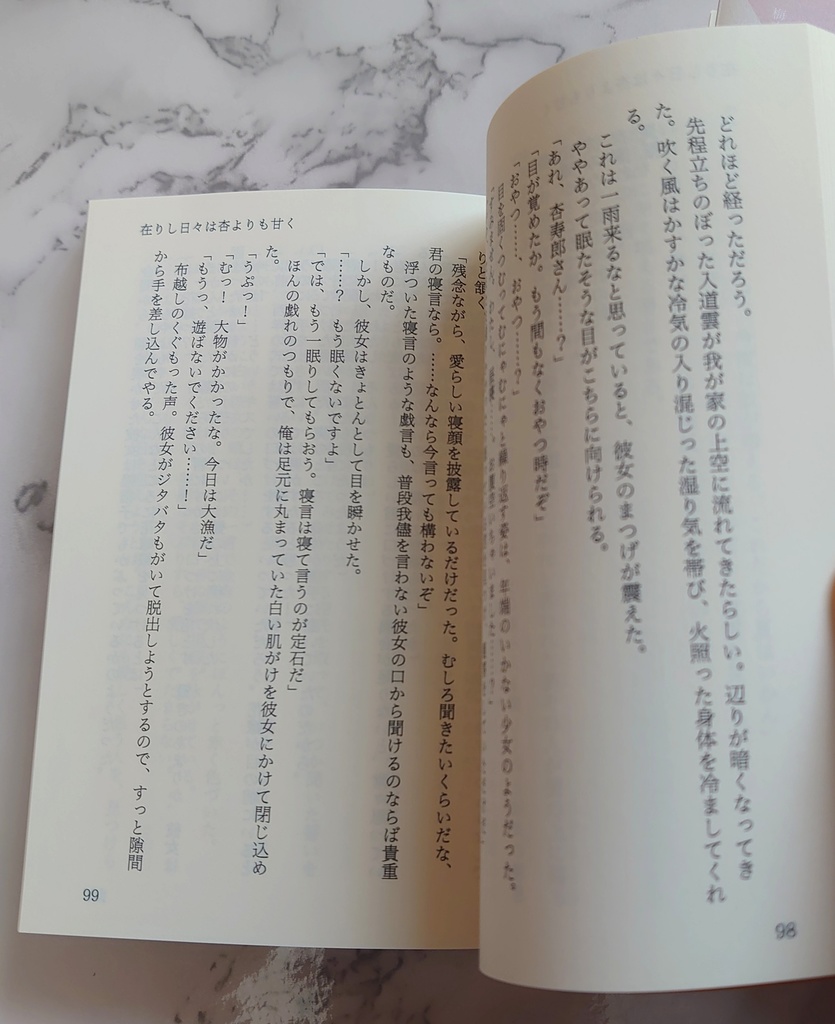 どれほど経っただろう。
先程立ちのぼった入道雲が我が家の上空に流れてきたらしい。辺りが暗くなってき
た。吹く風はかすかな冷気の入り混じった湿り気を帯び、火照った身体を冷ましてくれ
る。
これは一雨来るなと思っていると、彼女のまつげが震えた。
ややあって眠たそうな目がこちらに向けられる。
「あれ、杏寿郎さん……?」
「目が覚めたか。もう間もなくおやつ時だぞ」
「おやつ……、おやつ……?」
目を開くつむってむにゃむにゃと繰り返す姿は、年端のいかない少女のようだった。
98
在りし日々は杏よりも甘く
りと傾く
「残念ながら、愛らしい寝顔を披露しているだけだった。むしろ聞きたいくらいだな、
君の寝言なら。……なんなら今言っても構わないぞ」
浮ついた寝言のような戯言も、普段我儘を言わない彼女の口から聞けるのならば貴重
なものだ。
しかし、彼女はきょとんとして目を瞬かせた。
「……? もう眠くないですよ」
「では、もう一眠りしてもらおう。寝言は寝て言うのが定石だ」
ほんの戯れのつもりで、俺は足元に丸まっていた白い肌がけを彼女にかけて閉じ込め
た。
「うぷっ!」
「むっ! 大物がかかったな。今日は大漁だ」
「もうっ、遊ばないでください……!」
布越しのくぐもった声。彼女がジタバタもがいて脱出しようとするので、すっと隙間
から手を差し込んでやる。
99